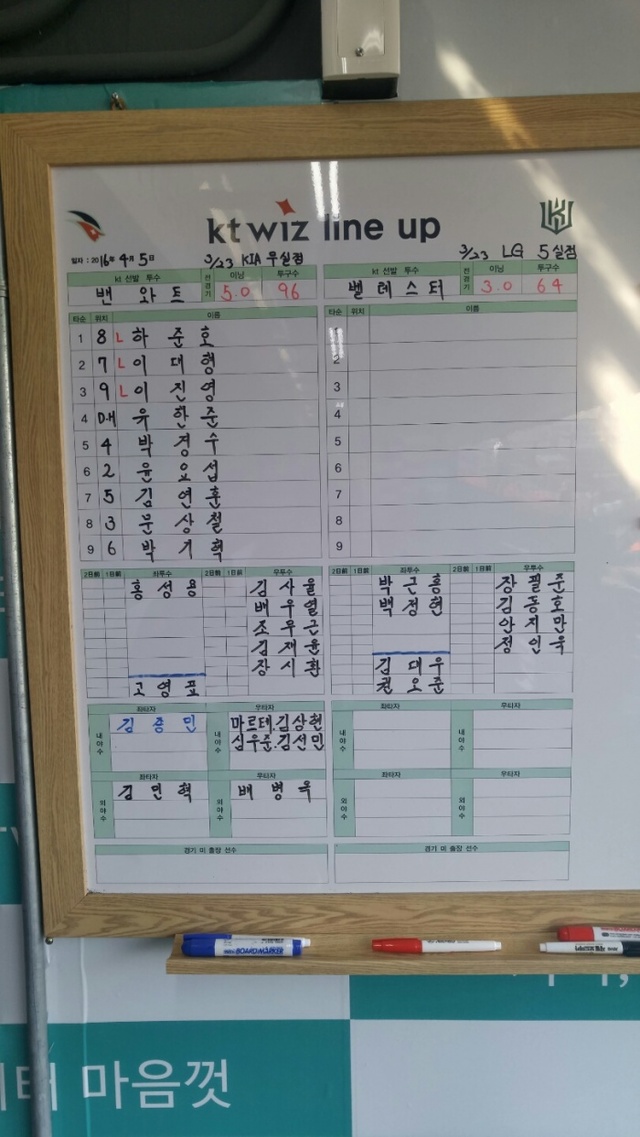 kt wiz line up
일자 : 2016년 4월 5일
3/23 KIA 무실점
3/23 LG 5실점
kt 선발 투수 전경기 이닝 투구수
밴 와트 5.0 96
kt 선발 투수 전경기 이닝 투구수
벨 레 스 터 3.0 64
타순 위치 이름
1 8 L 하 준 호
2 7 L 이 대 형
3 9 L 이 진 영
4 DH 유 한 준
5 4 박 경 수
6 2 윤 요 섭
7 5 김 연 훈
8 3 문 상 철
9 6 박 기 혁
타순 위치 이름
1
2
3
4
5
6
7
8
9
2일前 1일前 좌투수
홍 성 용
고 영 표
2일前 1일前 우투수
김 사 율
배 우 열
조 무 근
김 재 윤
장 시 환
2일前 1일前 좌투수
박 근 홍
백 정 현
김 대 우
권 오 준
2일前 1일前 우투수
장 필 준
김 동 호
안 지 만
정 인 욱
내야수 좌타자
김 종 민
내야수 우타자
마르테.김상현
심우준.김선민
외야수 좌타자
김 민 혁
외야수 우타자
배 병 옥
내야수 좌타자
내야수 우타자
외야수 좌타자
외야수 우타자
경기 미 출장 선수
경기 미 출장 선수
터 마음껏